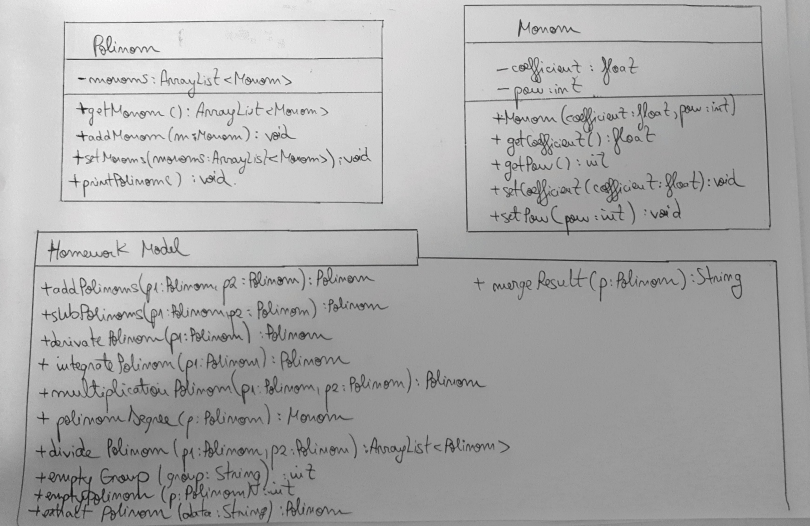 Polinom
- monoms: ArrayList<Monom>
+getMonom(): ArrayList<Monom>
+addMonom(m:Monom): void
+setMonoms(monoms:ArrayList<Monom>):void
+printPolinoms(): void.
Monom
- coefficient: float
- pow:int
+Monom(coefficient:float, pow:int)
+ getCoefficient(): float
+getPow(): int
+setCoefficient(coefficient:float): void
+setPow(pow:int): void
Homework Model
+addPolinoms(p1:Polinom, p2:Polinom): Polinom
+subPolinoms(p1:Polinom, p2:Polinom): Polinom
+derivate Polinom(p1:Polinom): Polinom
+ integrate Polinom(p1:Polinom): Polinom
+multiplication Polinom(p1:Polinom, p2:Polinom): Polinom
+ polinom Degree(p:Polinom): Monom
+divide Polinom(p1:Polinom, p2:Polinom): ArrayList<Polinom>
+empty Group (group: String): int
+emptyPolinom (p:Polinom): int
+extract Polinom (data:String): Polinom
+ mergeResult(p:Polinom): String